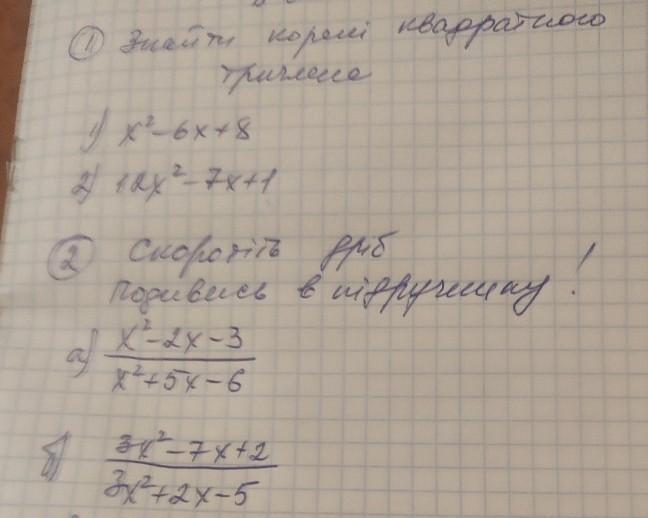 ① Знайти корені квадратного
тричлена
1) x²-6x+8
2) 12x²-7x+1
② Скоротіть дріб
Подивись в підручнику!
а) x²-2x-3
x²+5x-6
б) 3x²-7x+2
3x²+2x-5